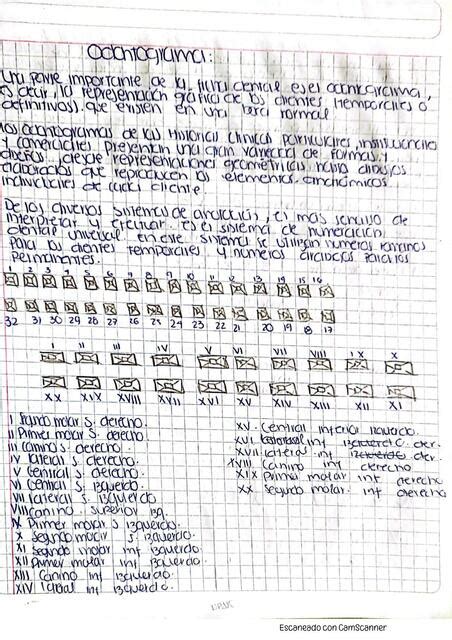 Odontograma:
Una parte importante de la ficha dental es el odontograma,
es decir, la representación gráfica de los dientes (temporales o
definitivos) que existen en una boca normal
Los odontogramas de las Historias clínicas particulares, institucionales
y comerciales presentan una gran variedad de formas y
diseños, desde representaciones geométricas hasta dibujos
elaborados que reproducen los elementos anatómicos
individuales de cada diente
De los diversos sistemas de anotación, el más sencillo de
interpretar y efectuar es el sistema de numeración
dental universal en este sistema se utilizan números romanos
para los dientes temporales y números arábigos para los
permanentes.
1 2 3 4 5 6 7 8 9 10 11 12 13 14 15 16
32 31 30 29 28 27 26 25 24 23 22 21 20 19 18 17
I II III IV V VI VII VIII IX X
XX XIX XVIII XVII XVI XV XIV XIII XII XI
I Segundo molar S. derecho
II Primer molar S. derecho
III Canino S. derecho
IV lateral S. derecho
V Central S. derecho
VI Central S. izquierdo
VII lateral S. izquierdo
VIII canino superior izq.
IX Primer molar S izquierdo.
X Segundo molar S. izquierdo.
XI Segundo molar inf izquierdo
XII Primer molar inf izquierdo.
XIII Canino inf izquierdo.
XIV lateral inf izquierdo.
XV. Central inferior izquierdo.
XVI. inf der.
XVII. lateral inf der.
XVIII Canino inf derecho
XIX Primer molar inf derecho
XX Segundo molar inf derecho
Escaneado con CamScanner